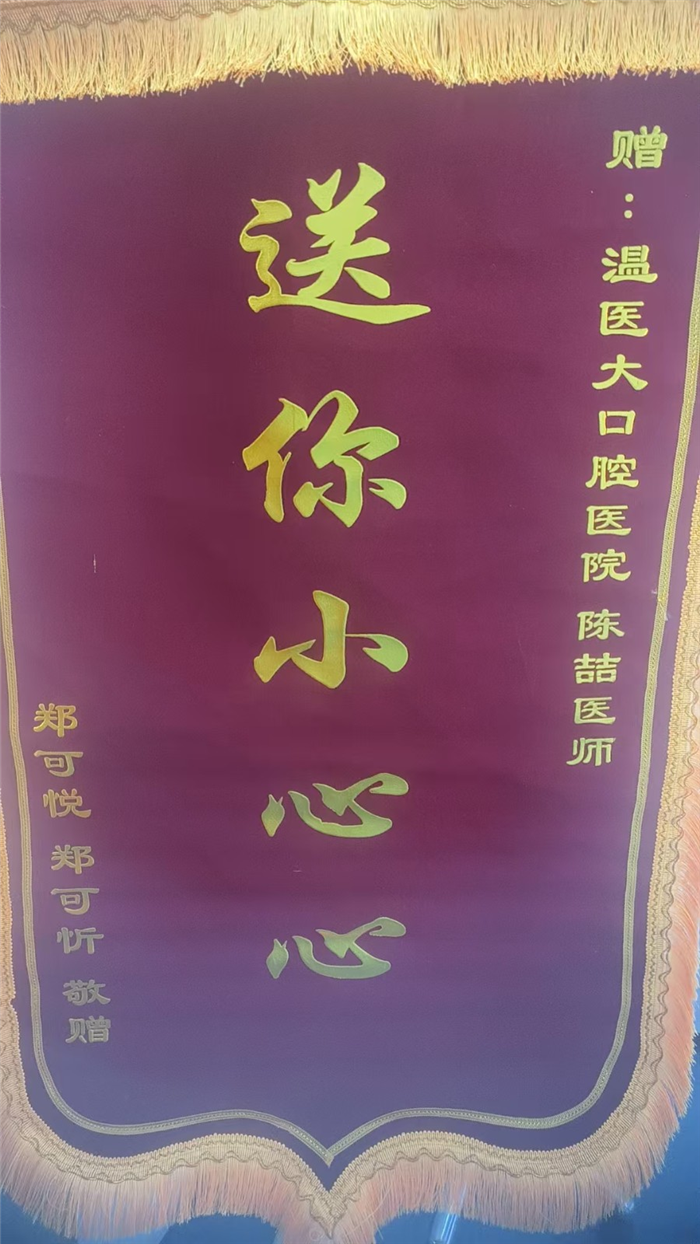 赠：温医大口腔医院 陈喆医师
送你小心心
郑可悦 郑可忻 敬赠